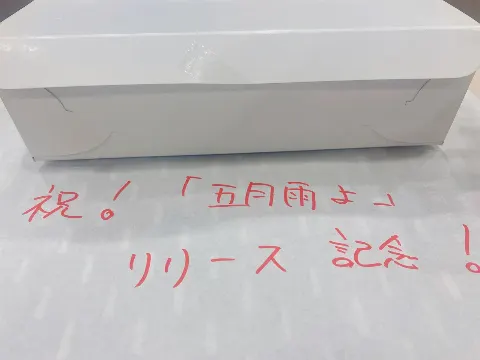 祝!「五月雨よ」
リリース 記念!